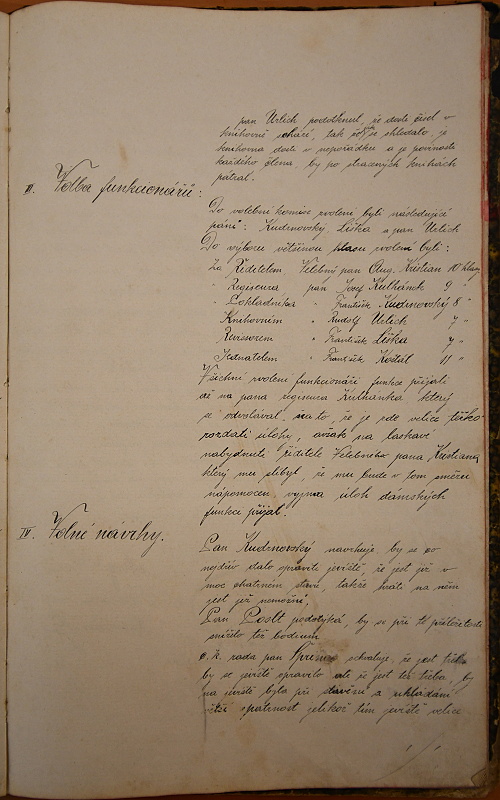 pan Urlich podotknul, že dosti čísel v
knihovně schází, tak se shledalo, že
knihovna dosti v nepořádku a je povinností
každého člena, by po ztracených knihách
pátral.
III. Volba funkcionářů:
Do volební komise zvoleni byli následující
páni: Kudrnovský, Liška a pan Urlich
Do výboru většinou hlasů zvoleni byli:
Za Ředitelem Velebný pan Aug. Kristian 10 hlasy
" regiseura pan Josef Kulhánek 9 "
" Pokladníka " František Kudrnovský 8 "
Knihovním " Rudolf Urlich 7 "
Revisorem " František Liška 7 "
Jednatelem " František Košťál 11 "
Všichni zvolení funkcionáři funkce přijali
až na pana regiseura Kulhánka který
se odvolával na to, že je zde velice těžko
rozdati úlohy, avšak na laskavé
nabydnutí ředitele Velebného pana Kristiana
který mu slíbil, že mu bude v tom směru
nápomocen vyjma úloh dámských
funkci přijal.
IV. Volné návrhy.
Pan Kudrnovský navrhuje, by se co
nejdřív dalo opraviti jeviště, že jest již v
moc chatrném stavu, takže hráti na něm
jest již nemožné,
Pan Postt podotýká by se při té příležitosti
snížilo též bodium
c. k. rada pan schvaluje, že jest třeba
by se jeviště opravilo ale že jest též třeba, by
na jeviště byla při stavění a ukládání
větší opatrnost jelikož tím jeviště velice